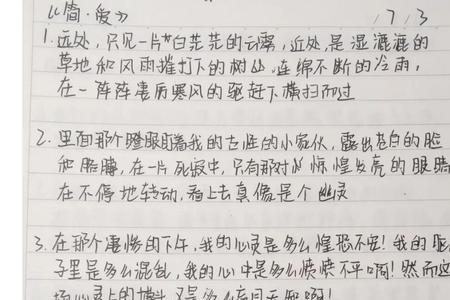 《简·爱》 1 7 3
1. 远处，只见一片白茫茫的云雾，近处，是湿漉漉的
草地和风雨摧打下的树丛，连绵不断的冷雨，
在一阵阵凄厉寒风的驱赶下横扫而过
2. 里面那个瞪眼盯着我的古怪的小家伙，露出苍白的脸
和胳膊，在一片死寂中，只有那对惊惶发亮的眼睛
在不停地转动，看上去真像是个幽灵
3. 在那个凄惨的下午，我的心灵是多么惶恐不安！我的脑
子里是多么混乱，我的心中是多么愤愤不平啊！然而这
场心灵上的搏斗又是多么盲目无知啊！